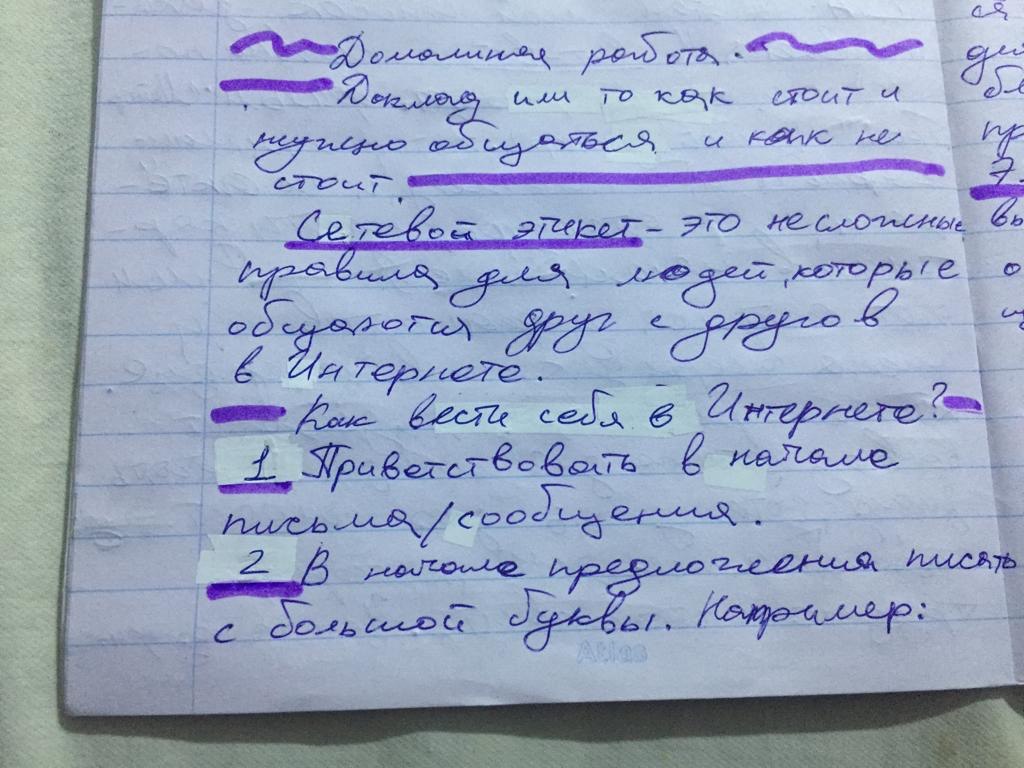 Домашняя работа.
Доклад или то как стоит и
нужно общаться и как не
стоит
Сетевой этикет - это несложные
правила для людей, которые
общаются друг с другов
в Интернете.
Как вести себя в Интернете?
1 Приветствовать в начале
письма/сообщения.
2 В начале предложения писать
с большой буквы. Например:
Atlas
ся
пр
7.
вы
о